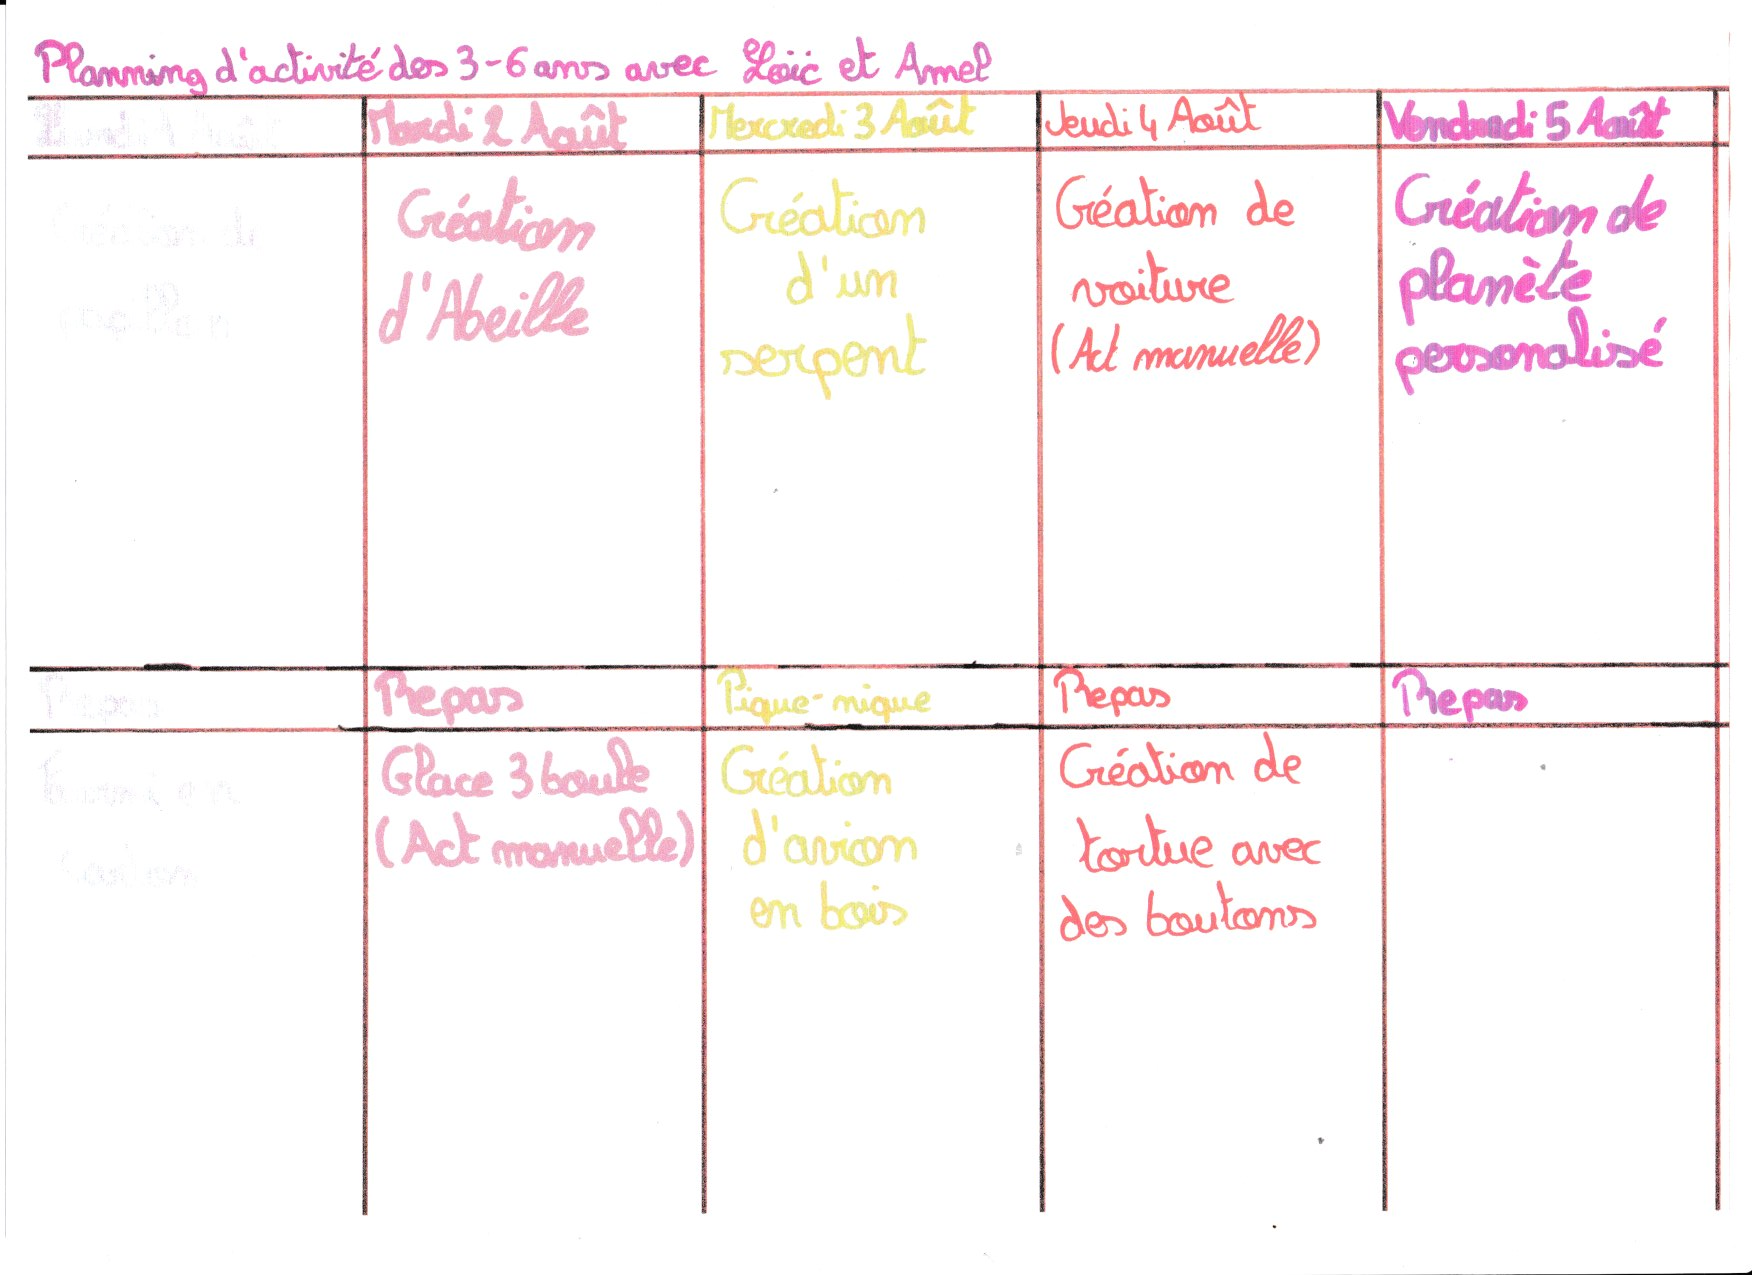 Planning d'activité des 3-6 ans avec Loïc et Amel
Lundi 1 Août
Mardi 2 Août
Mercredi 3 Août
Jeudi 4 Août
Vendredi 5 Août
Création de
papillon
Création
d'Abeille
Création
d'un
serpent
Création de
voiture
(Act manuelle)
Création de
planète
personalisé
Repas
Repas
Pique-nique
Repas
Repas
en
Glace 3 boule
(Act manuelle)
Création
d'avion
en bois
Création de
tortue avec
des boutons